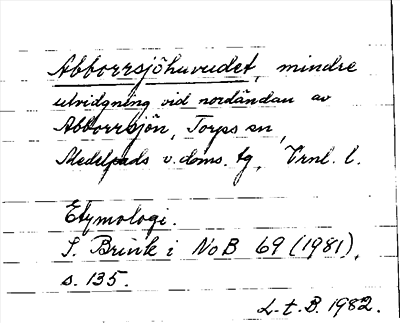 Abborrsjöhuvudet, mindre
utvidgning vid nordändan av
Abborrsjön, Torps sn,
Medelpads v. doms. tg, Vrnl. l.
Etymologi.
S. Brink i NoB 69 (1981),
s. 135.
L. t. B. 1982.